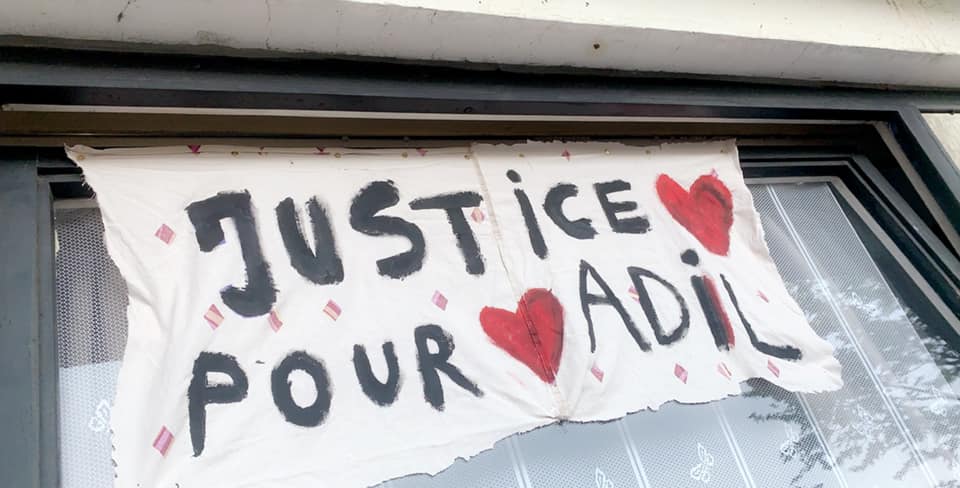 JUSTiCE
POUR ADiL